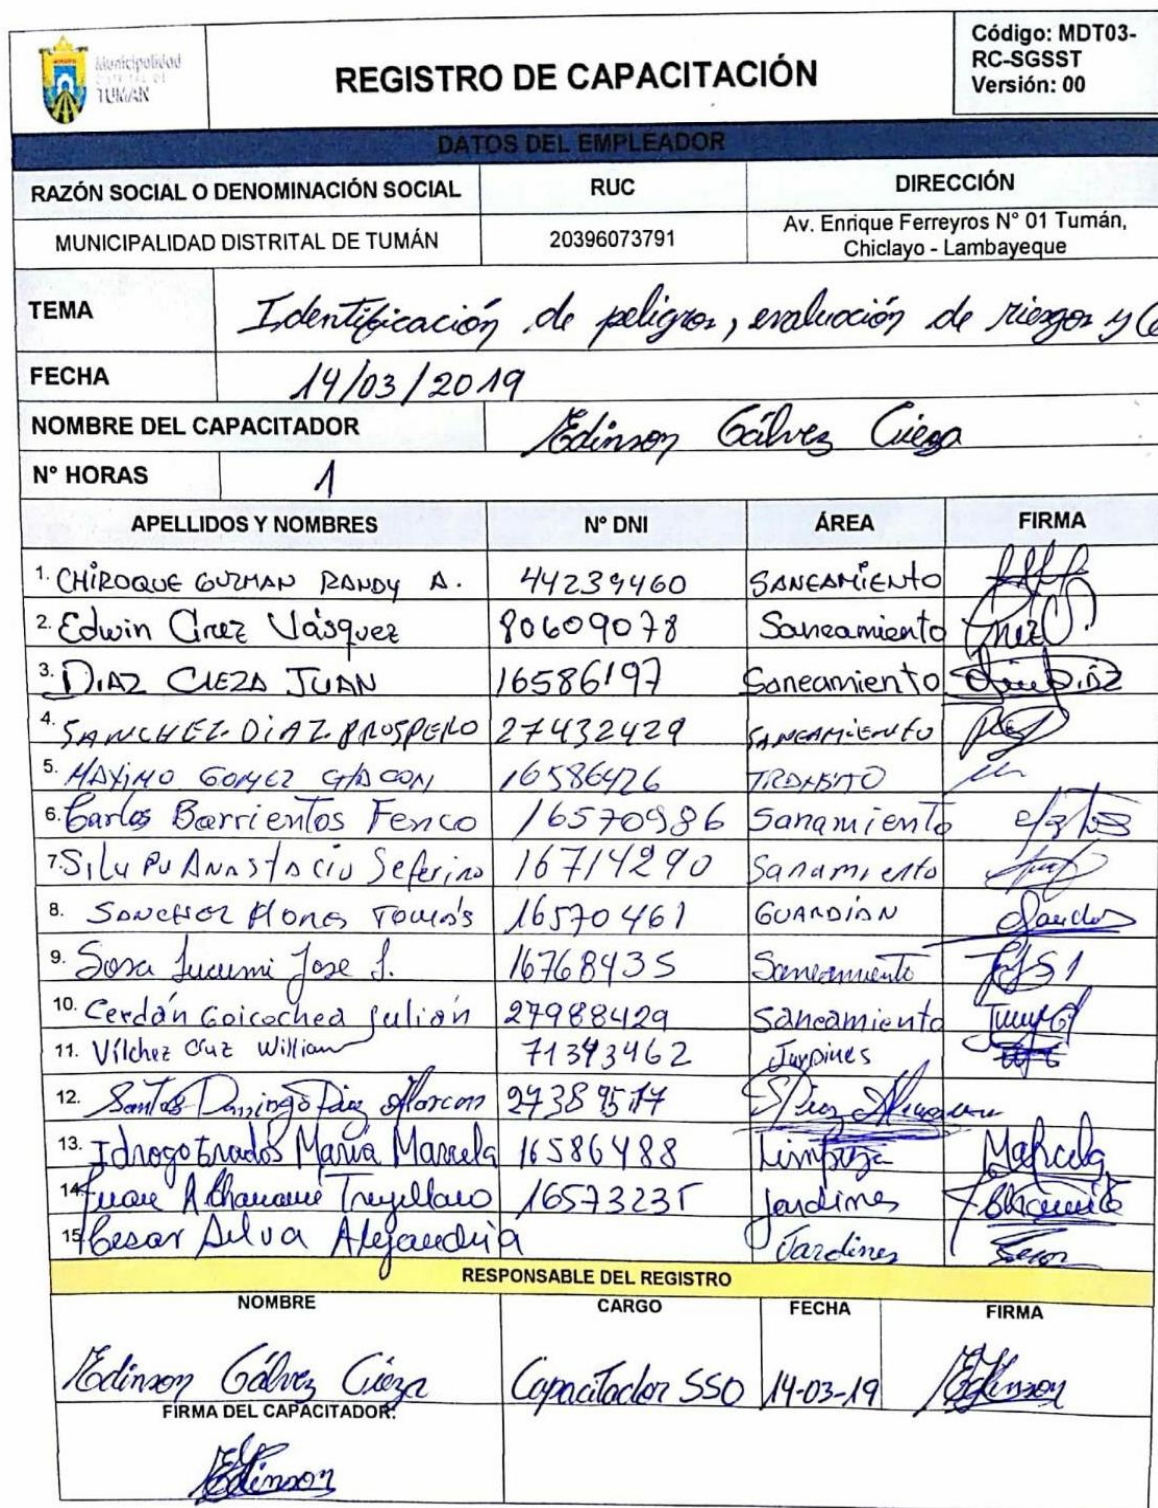 Municipalidad
DISTRITAL DE
TUMÁN
REGISTRO DE CAPACITACIÓN
Código: MDT03-
RC-SGSST
Versión: 00
DATOS DEL EMPLEADOR
RAZÓN SOCIAL O DENOMINACIÓN SOCIAL RUC DIRECCIÓN
MUNICIPALIDAD DISTRITAL DE TUMÁN 20396073791 Av. Enrique Ferreyros N° 01 Tumán,
Chiclayo - Lambayeque
TEMA Identificación de peligros, evaluación de riesgos y
FECHA 14/03/2019
NOMBRE DEL CAPACITADOR Edinson Gálvez Cieza
N° HORAS 1
APELLIDOS Y NOMBRES N° DNI ÁREA FIRMA
1. CHIROQUE GUZMAN RANDY A. 44239460 SANEAMIENTO
2. Edwin Cruz Vásquez 80609078 Saneamiento
3. DIAZ CIEZA JUAN 16586197 Saneamiento
4. SANCHEZ DIAZ PROSPERO 27432429 SANEAMIENTO
5. MAXIMO GOMEZ CHACON 16586426 TRANSITO
6. Carlos Barrientos Fenco 16570986 Sanamiento
7. Silupu Anastacio Seferino 16714290 Sanamiento
8. Sanchez Flores Tomás 16570461 GUARDIÁN
9. Sosa Lucumi Jose J. 16768435 Saneamiento
10. Cerdán Goicochea Julián 27988429 Saneamiento
11. Vílchez Cruz William 71343462 Jardines
12. Santos Domingo Diaz Alarcon 27389517
13. Idrogo Grados Maria Marcela 16586488 Limpieza Marcela
14. Juan A Chanamé 16573235 Jardines
15. Cesar Silva Alejandría Jardines
RESPONSABLE DEL REGISTRO
NOMBRE CARGO FECHA FIRMA
Edinson Gálvez Cieza Capacitador SSO 14-03-19 Edinson
FIRMA DEL CAPACITADOR:
Edinson